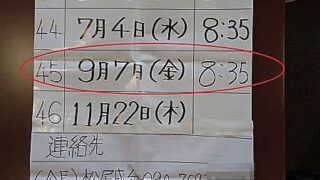 44 7月4日(水) 8:35
45 9月7日(金) 8:35
46 11月22日(木)
連絡先